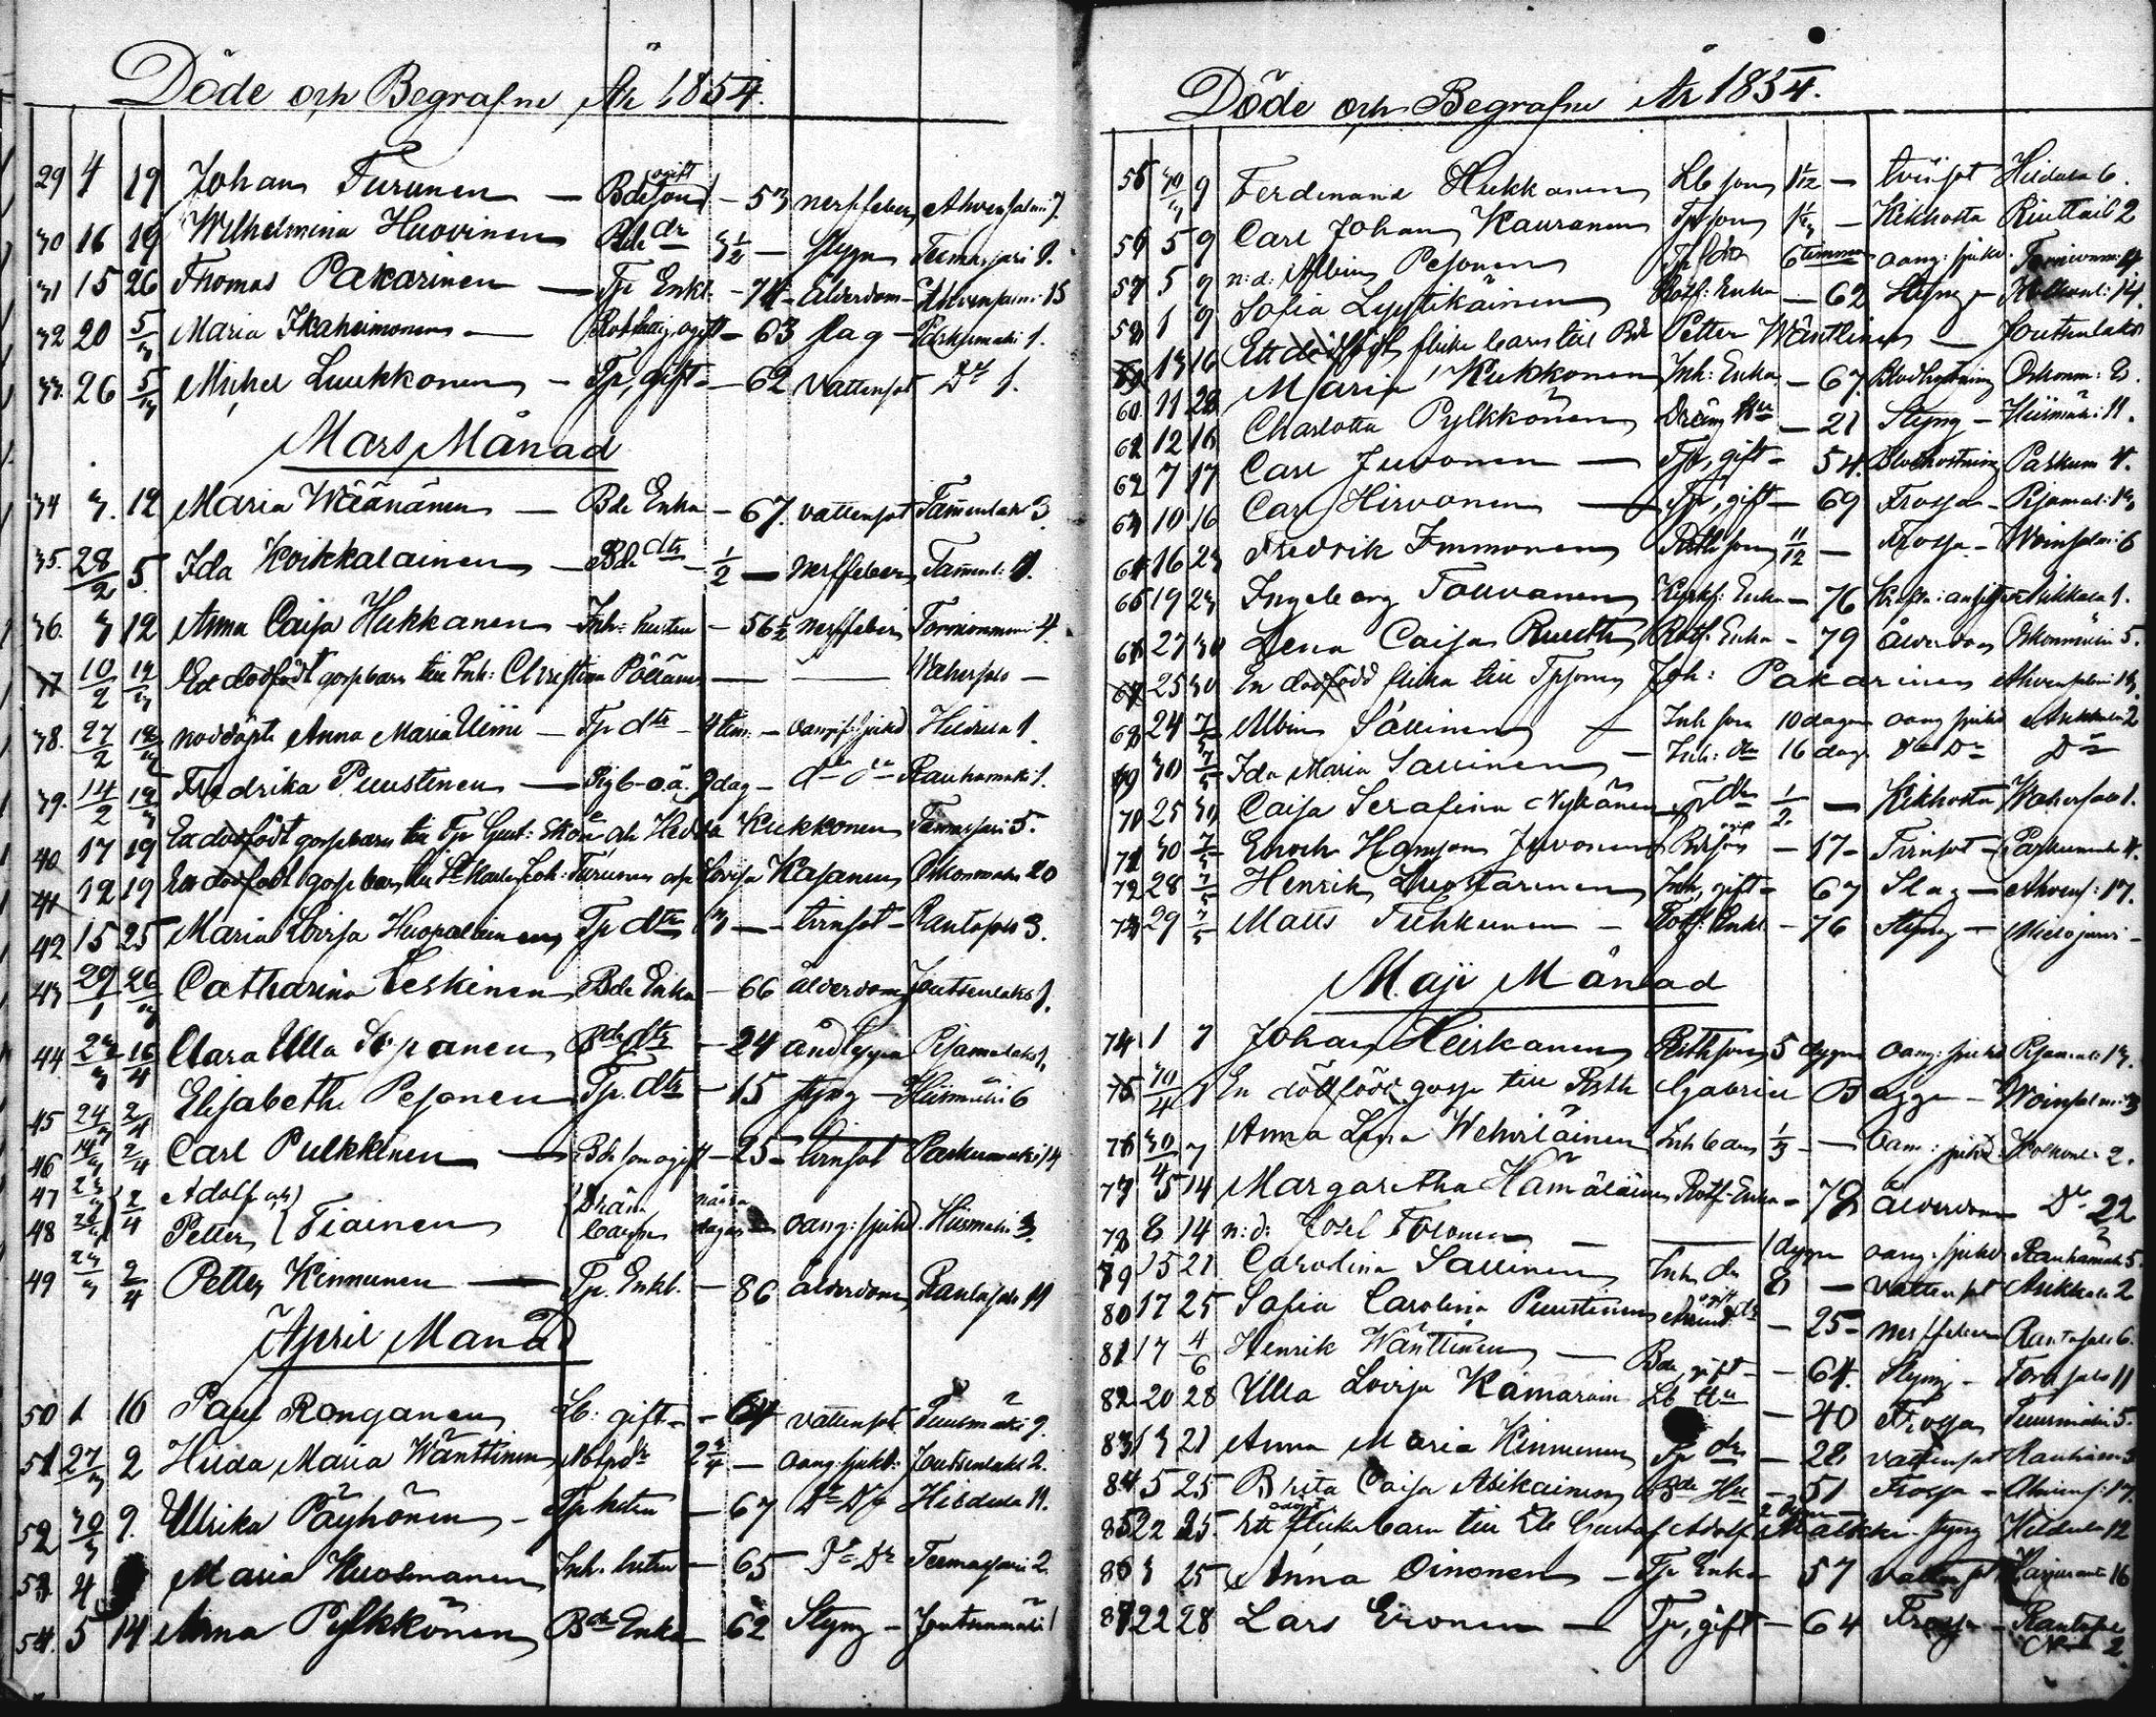 Döde och Begrafne År 1854.
29 4 19 Johan Turunen — Bde Son ogift - 53 nerffeber Ahvensalmi 7.
30 16 19 Wilhelmina Huovinen Bde dr 3 1/2 — stygn Teemasjärvi 9.
31 15 26 Thomas Pakarinen — Tp Enkl. - 74 - ålderdom - Ahvensalmi 15
32 20 5/3 Maria Ikäheimonen — ogift - 63 slag - 1.
33. 26 5/3 Michel Luukkonen - Tp, gift - 62 vattensot Do 1.
Mars Månad
34 3. 12 Maria Wäänänen — Bde Enka - 67. vattensot Tammenlaks 3.
35. 28/2 5. Ida Koikkalainen — Bde dtr - 1/2 — nerffeber Tammenl: 9.
36. 3 12 Anna Caisa Hukkanen - Inh: hustru - 56 1/2 nerffeber Tornionmäki 4.
37 10/2 12/3 Ett dödfödt gossbarn till Inh: Christian Pöllänen — — Wahersalo —
38. 27/2 12/3 nöddöpt Anna Maria Miini — Tp dtr - 4 tim. - oangif: sjukd Hiidula 1.
39. 14/2 12/3 Fredrika Puustinen — Pig b-o.ä. 9 dag - do do Rauhamäki 1.
40 17 19 Ett dödfödt gossbarn till Tp Gust: och Hedda Kukkonen Temasjärvi 5.
41 12 19 Ett dödfödt gossbarn till Joh: Turunen och Lovisa Kasanen Oskonmäki 20
42 15 25 Maria Lovisa Huopalainen Tp dtr 3 — tvinsot - Rantasalo 3.
43 29/1 26/3 Catharina Leskinen Bde Enka - 66 ålderdom Joutsenlaks 1.
44 23/3 16/4 Clara Ulla Seppänen Bde dtr - 24 andtäppa Pjamalaks 1.
45 24/3 2/4 Elisabeth Pesonen Tp. dtr - 15 styng - Hiismäki 6
46 14/3 2/4 Carl Pulkkinen — Bde son ogift - 25 - tvinsot Paskumäki 14
47 23/3 } 2/4 Adolf och
48 Petter } Tiainen några dagar — oang: sjukd. Hiismäki 3.
49 23/3 2/4 Petter Kinnunen — Tp. Enkl. - 86 ålderdom Rantasalo 11
April Månad
50 1 16 Paul Ronganen Lb: gift - - 64 vattensot Tuusmäki 9.
51 27/3 2 Hilda Maria Wänttinen 2 3/4 — oang: sjukd: Joutsenlaks 2.
52 30/3 9. Ulrika Päyhönen - Tp hustru — 67 Do Do Hiidula 11.
53. 4 Maria Huosmanen Inh. hustru — 65 Do Do Temasjärvi 2.
54. 5 14 Anna Pylkkönen Bde Enka — 62 Styng - Joutsenmäki 1
Döde och Begrafne År 1854.
55 30/3 9 Ferdinand Hukkanen Lb son 1 1/12 — tvinsot Hiidula 6.
56 5 9 Carl Johan Kauranen Tp son — Kikhosta Ruuttail 2
57 5 9 n:d: Albin Pesonen Tp 6 timmar oang: sjukd. Tornionm: 4
58 1 9 Sofia Lyytikäinen Rotf: Enka — 62 Styng - Kolkonl: 14.
59 13 16 Ett dödfödt flicke barn till Bde Petter Wänttinen — Joutsenlaks
60. 11 28 Maria Kukkonen Inh: Enka - 67. Blodhostning Oskonm: 8.
61 12 16 Charlotta Pylkkönen Dräng Hu — 21 Styng - Hiismäki 11.
62 7 17 Carl Juvonen — Tp, gift - 54. Blodhostning Paskum 4.
63 10 16 Carl Hirvonen — Tp, gift - 69 Frossa - Pjamal: 13
64 16 23 Fredrik Immonen Rith son 11/12 — Frossa - Woinsalmi 6
65 19 23 Ingeborg Tolvanen Enka - 76 Kräfta: ansigtet Asikkala 1.
66 27 30 Lena Caisa Ruuth Rotf. Enka - 79 ålderdom Oskonmäki 5.
67 25 30 En dödfödd flicka till Tpsonen Joh: Pakarinen Ahvensalmi 13.
68 24 7/5 Albin Sallinen — Inh son 10 dagar oang sjukd Asikkala 2
69 30 7/5 Ida Maria Sallinen — Inh: dtr 16 dag do Do Do
70 25 30 Caisa Serafina Nykänen Tp dtr 1/2 — Kikhosta Wahersalo 1.
71 30 7/5 Enoch Hansson Juvonen - 17 - Tvinsot - Paskumäki 4.
72 28 7/5 Henrik Luostarinen Inh, gift - 67 Slag - Ahvens: 17.
73 29 7/5 Matts Tuhkunen — Rotf: Enkl. - 76 Styng - Mielojärvi -
Maji Månad
74 1 7 Johan Heiskanen Rith son 5 dygn oang: sjukd Pjamal: 13.
75 30/4 7 En dödfödd gosse till Rith Gabriel Bagge - Woinsalmi 3
76 30/4 7 Anna Lena Wehviläinen Inh barn 1/3 — oan: sjukd: Kolkonl: 2.
77 5 14 Margaretha Hämäläinen Rotf: Enka - 78 ålderdom Do 22
78 8 14 n:d: Josef Tolonen — — 1 dygn oang: sjukd Rauhamäki 5.
79 15 21 Carolina Sallinen Inh dr 8 — vattensot Asikkala 2
80 17 25 Sofia Carolina Puustinen ogift — 25 - nerffeber Rantasalo 6.
81 17 4/6 Henrik Wänttinen — Bde, gift - - 64. Styng - Torasalo 11
82 20 28 Ulla Lovisa Kämäräin Lb Hu — 40 Frossa Tuusmäki 5.
83 13 21 Anna Maria Kinnunen Tp dr — 28 vattensot Rauham: 3
84 5 25 Brita Caisa Asikainen Bde Hu - 51 Frossa - 17.
85 22 25. Ett odöpt flicke barn till Gustaf Adolf Malkki - styng Hiidula 12
86 3 25 Anna Oinonen — Tp Enka 57 vattensot Harjuranta 16
87 22 28 Lars Eronen — Tp, gift - 64 Frossa - Rantasalo
2.